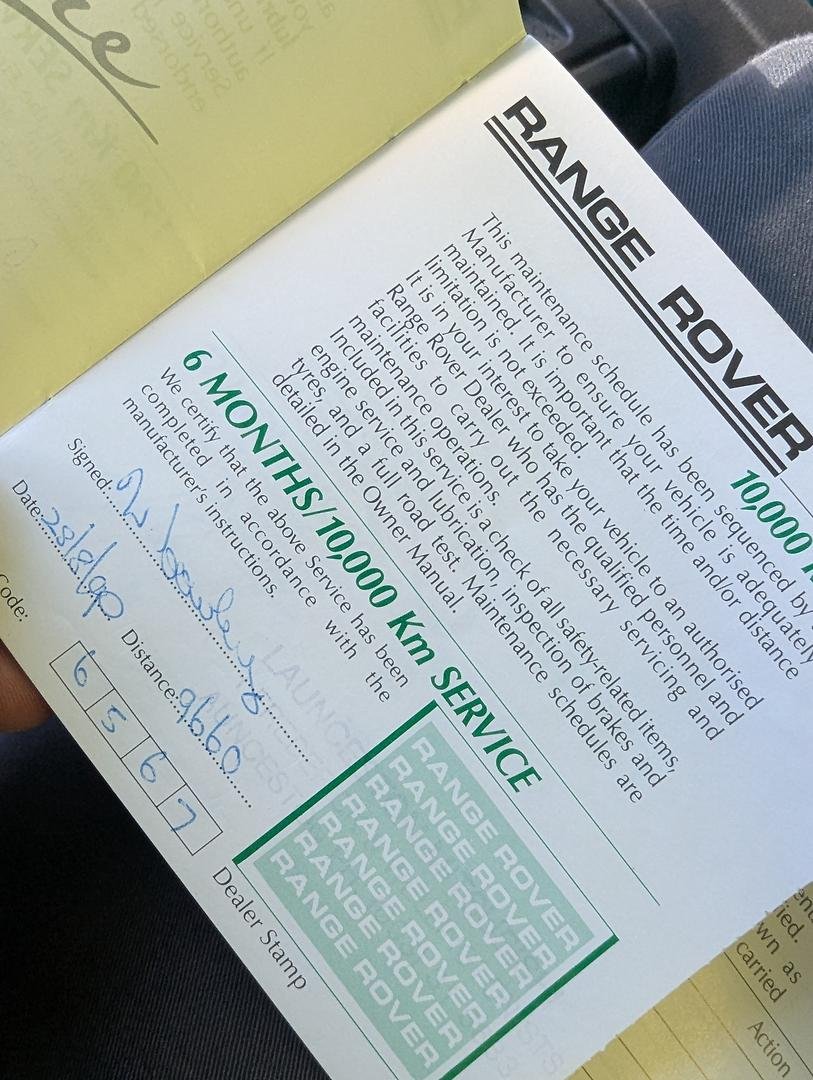 RANGE ROVER
10,000
This maintenance schedule has been sequenced by
Manufacturer to ensure your vehicle is adequately
maintained. It is important that the time and/or distance
limitation is not exceeded.
It is in your interest to take your vehicle to an authorised
Range Rover Dealer who has the qualified personnel and
facilities to carry out the necessary servicing and
maintenance operations.
Included in this service is a check of all safety-related items,
engine service and lubrication, inspection of brakes and
tyres, and a full road test. Maintenance schedules are
detailed in the Owner Manual.
6 MONTHS/10,000 Km SERVICE
We certify that the above Service has been
completed in accordance with the
manufacturer's instructions.
Signed:
Date: 23/8/90 Distance: 9660
Code: 6567
Dealer Stamp
RANGE ROVER
RANGE ROVER
RANGE ROVER
RANGE ROVER
RANGE ROVER
wn as
carried
Action